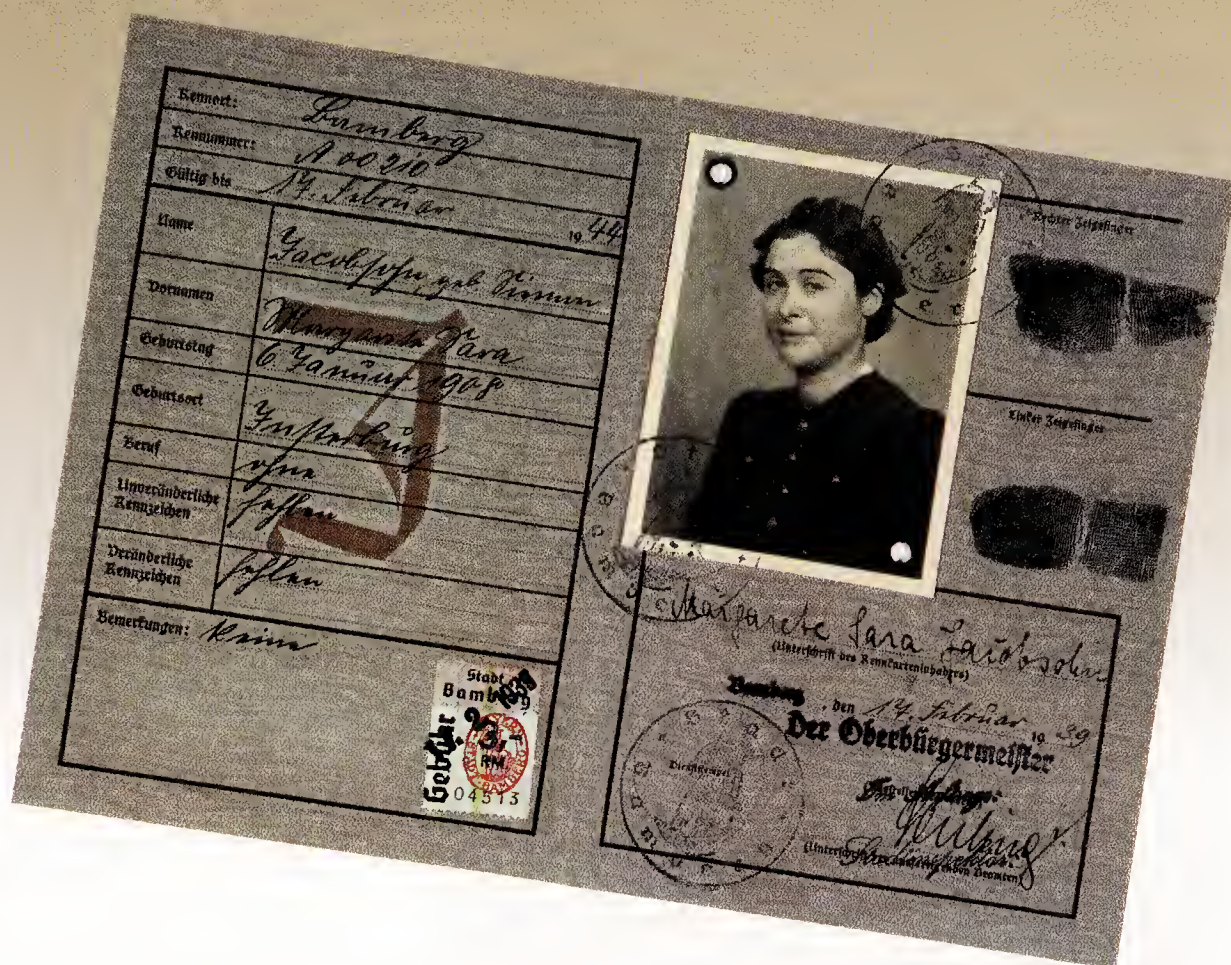 Kennort: Bamberg
Kennummer: A 00210
Gültig bis 17. Februar 1944
Name Jacobsohn geb
Vornamen Margarete Sara
Geburtstag 6. Januar 1908
Geburtsort Insterburg
Beruf ohne
Unveränderliche
Kennzeichen fehlen
Veränderliche
Kennzeichen fehlen
Bemerkungen: Keine
J
Stadt
Bamberg
Gebühr
3,
RM.
04513
Rechter Zeigefinger
Linker Zeigefinger
Margarete Sara Jacobsohn
(Unterschrift des Kennkarteninhabers)
Bamberg, den 17. Februar 1939
Der Oberbürgermeister
Dienststempel